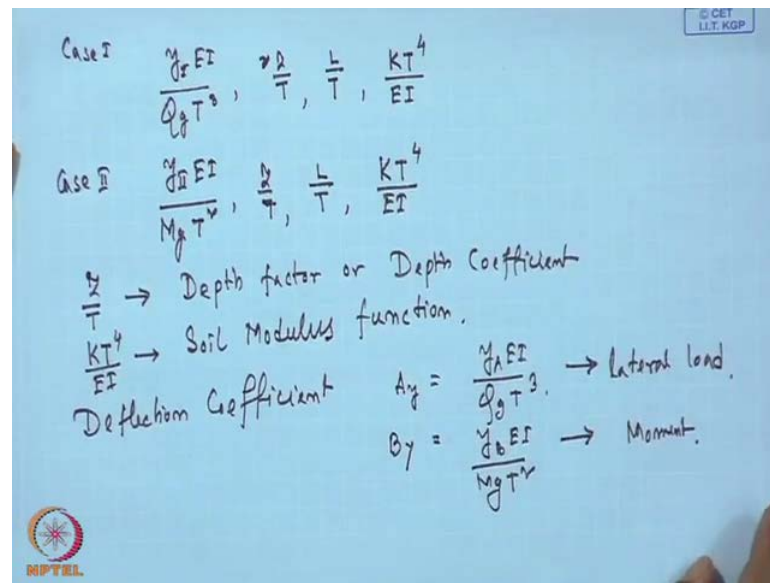 © CET
I.I.T. KGP
Case I y_I EI / Q_g T³ , z/T , L/T , KT⁴/EI
Case II y_II EI / M_g T² , z/T , L/T , KT⁴/EI
z/T → Depth factor or Depth Coefficient
KT⁴/EI → Soil Modulus function.
Deflection Coefficient A_y = y_A EI / Q_g T³. → Lateral load.
B_y = y_B EI / M_g T² → Moment.
NPTEL